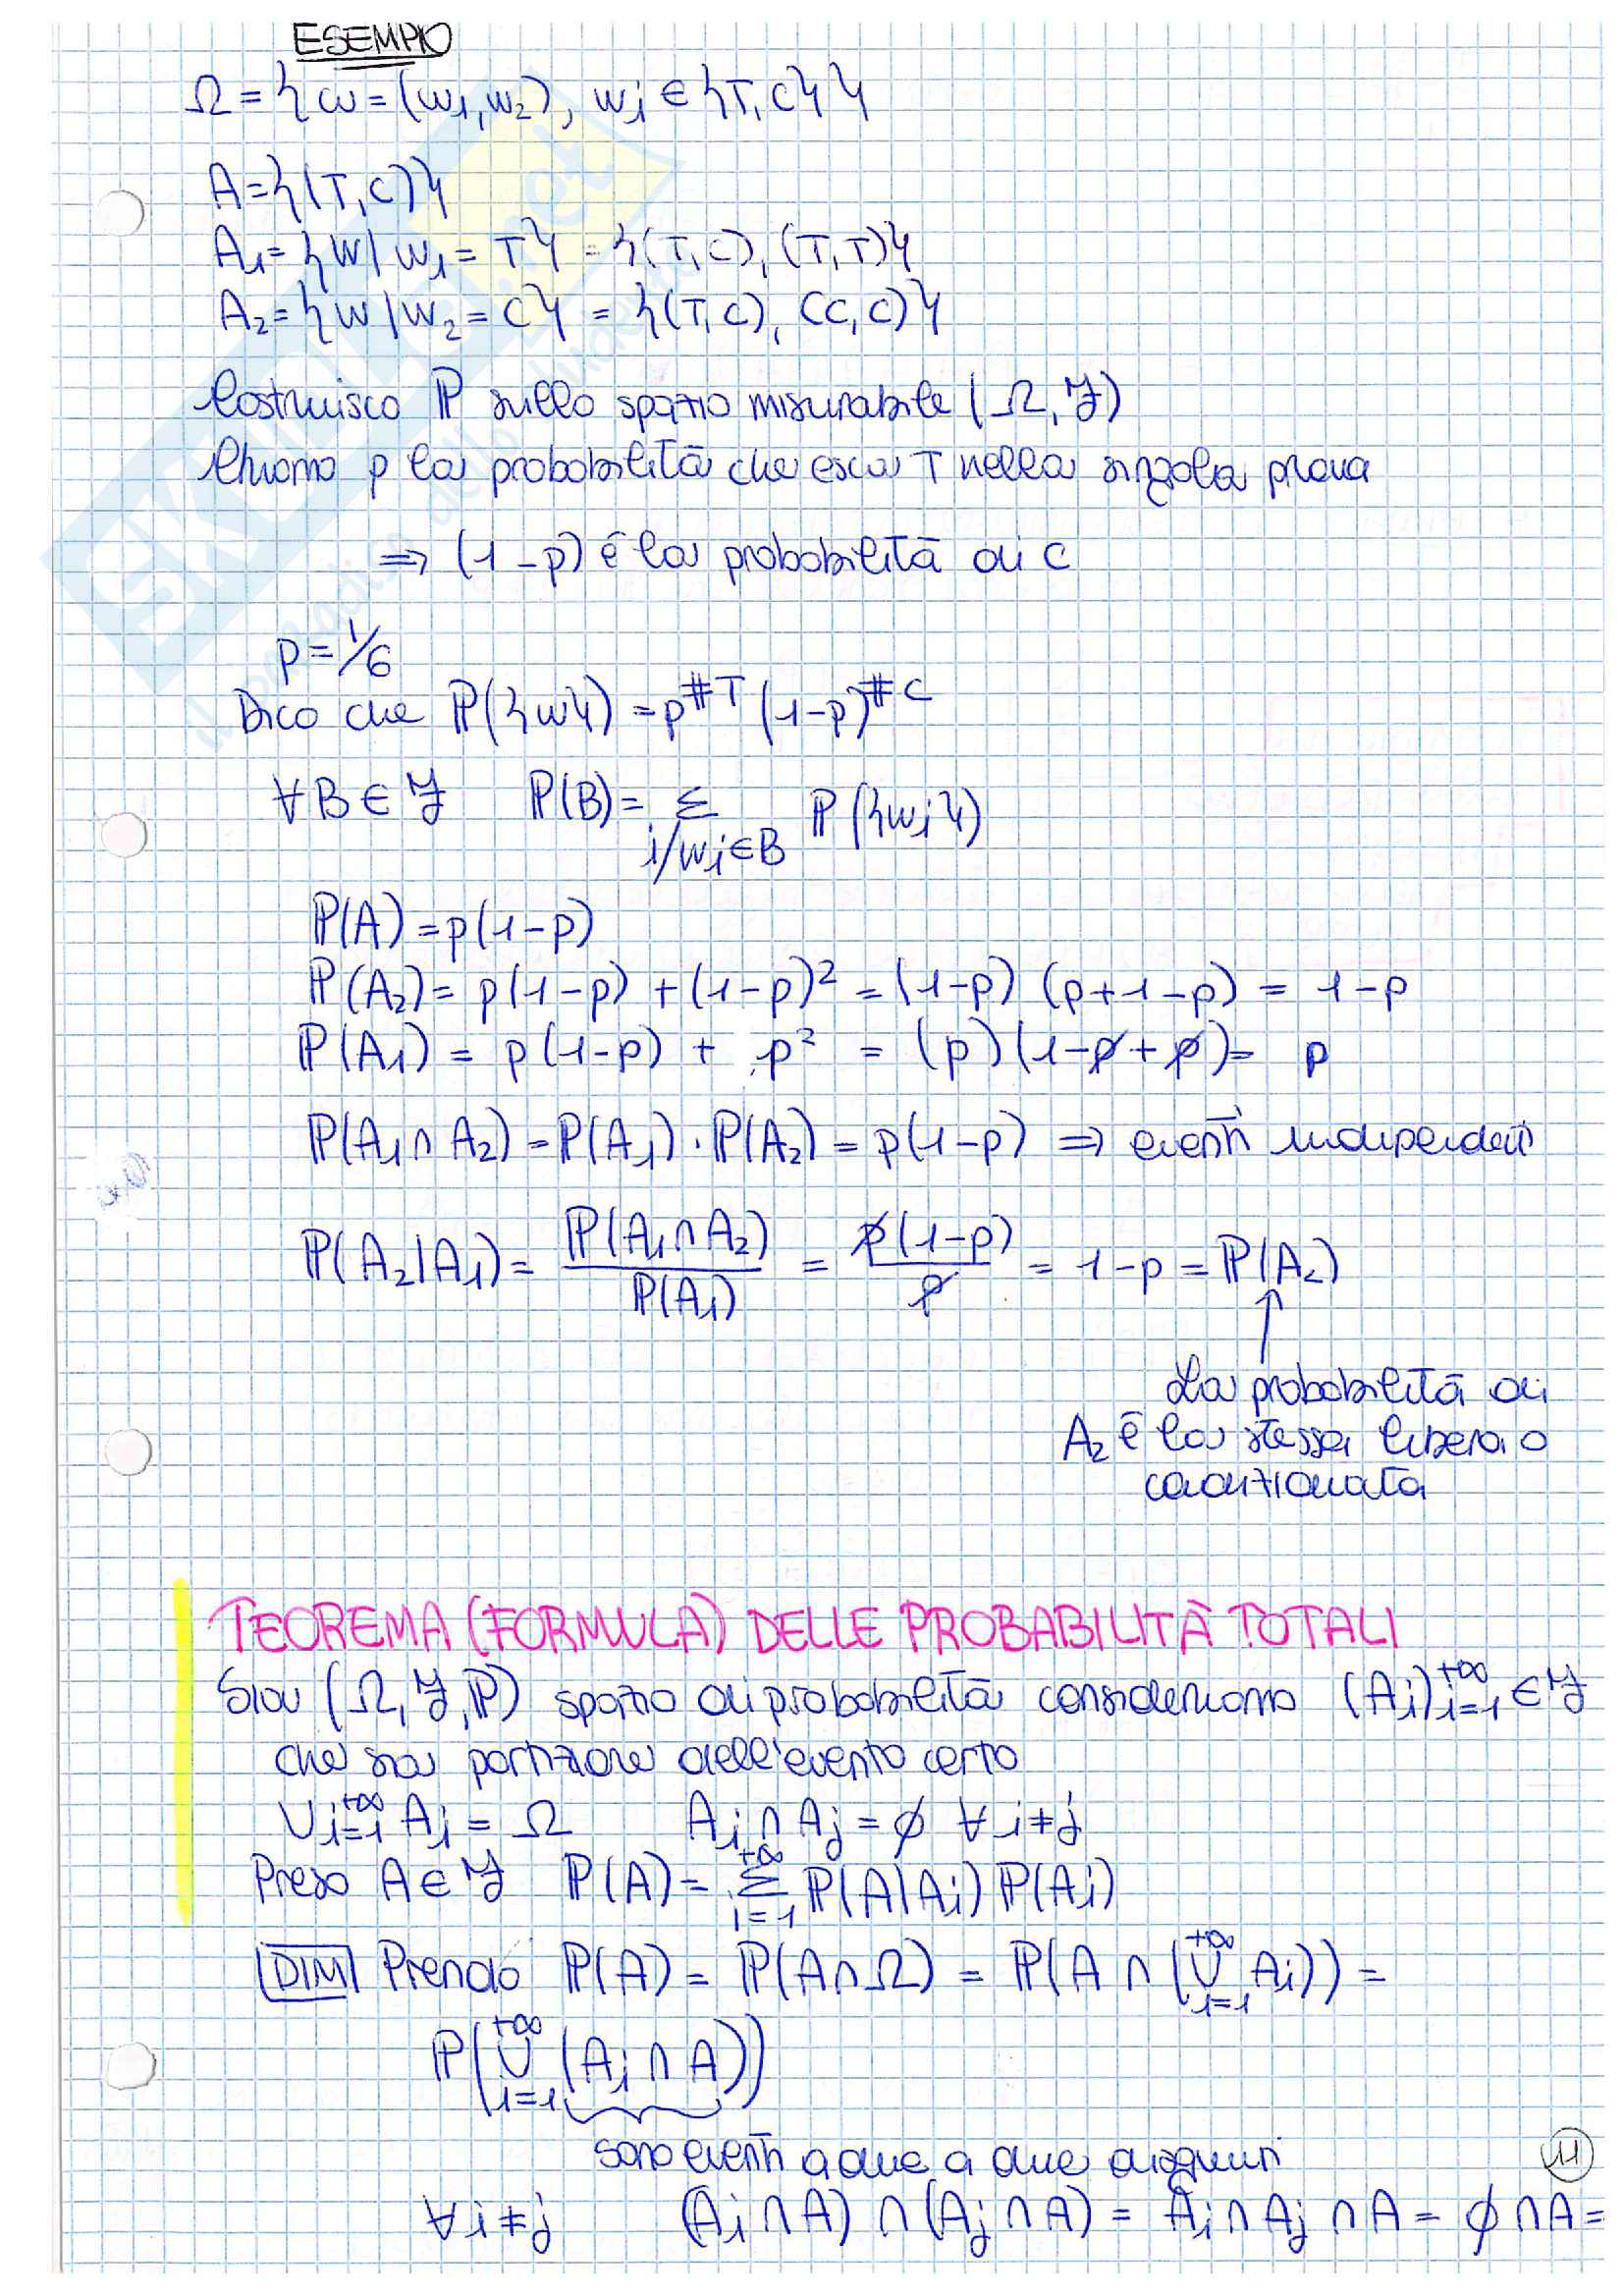 ESEMPIO
Ω = {ω = (w₁, w₂), wᵢ ∈ {T, C}}
A = {(T, C)}
A₁ = {w | w₁ = T} = {(T, C), (T, T)}
A₂ = {w / w₂ = C} = {(T, C), (C, C)}
Costruisco ℙ sullo spazio misurabile (Ω, ℱ)
Chiamo p la probabilità che esca T nella singola prova
⇒ (1-p) è la probabilità di C
p = 1/6
Dico che ℙ({w}) = p^#T (1-p)^#C
∀ B ∈ ℱ ℙ(B) = Σ_{i/wᵢ∈B} ℙ({wᵢ})
ℙ(A) = p(1-p)
ℙ(A₂) = p(1-p) + (1-p)² = (1-p) (p+1-p) = 1-p
ℙ(A₁) = p(1-p) + p² = (p)(1-p+p) = p
ℙ(A₁ ∩ A₂) = ℙ(A₁) · ℙ(A₂) = p(1-p) ⇒ eventi indipendenti
ℙ(A₂|A₁) = ℙ(A₁ ∩ A₂) / ℙ(A₁) = p(1-p) / p = 1-p = ℙ(A₂)
↑
La probabilità di
A₂ è la stessa libera o
condizionata
TEOREMA (FORMULA) DELLE PROBABILITÀ TOTALI
Sia (Ω, ℱ, ℙ) spazio di probabilità consideriamo (Aᵢ)ᵢ₌₁^{+∞} ∈ ℱ
che sia partizione dell'evento certo
∪ᵢ₌₁^{+∞} Aᵢ = Ω Aᵢ ∩ Aⱼ = ∅ ∀ i ≠ j
Preso A ∈ ℱ ℙ(A) = Σ_{i=1}^{+∞} ℙ(A|Aᵢ) ℙ(Aᵢ)
DIM Prendo ℙ(A) = ℙ(A ∩ Ω) = ℙ(A ∩ (∪_{i=1}^{+∞} Aᵢ)) =
ℙ(∪_{i=1}^{+∞} (Aᵢ ∩ A))
sono eventi a due a due disgiunti
11
∀ i ≠ j (Aᵢ ∩ A) ∩ (Aⱼ ∩ A) = Aᵢ ∩ Aⱼ ∩ A = ∅ ∩ A =